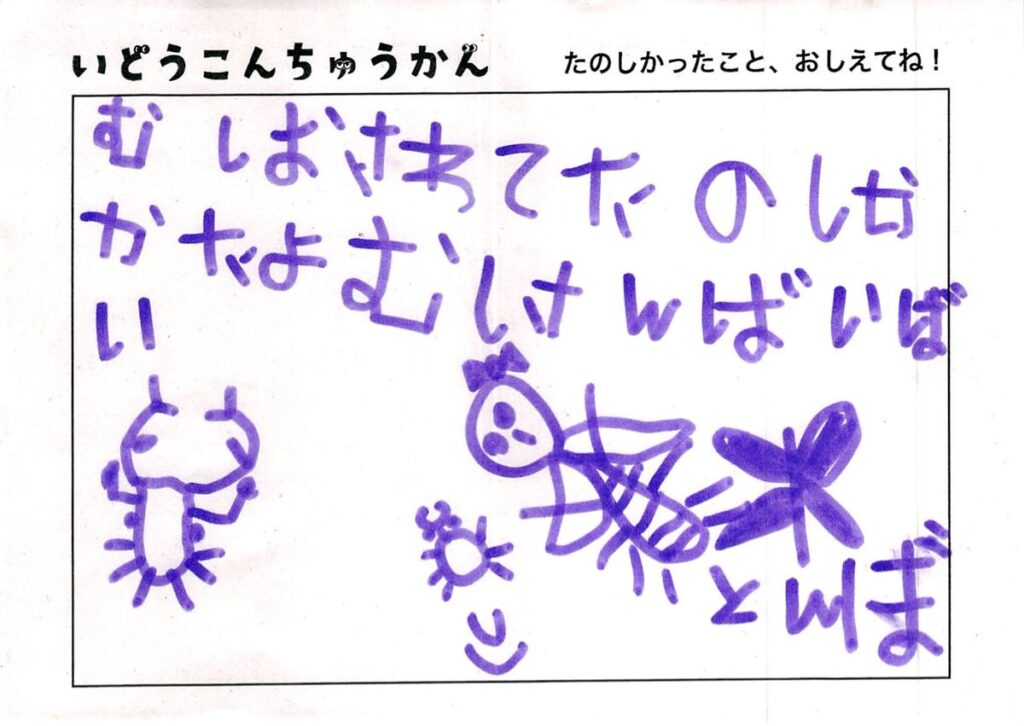 いどうこんちゅうかん　たのしかったこと、おしえてね！
むしおさわてたのしか
かたよむしさんばいば
い
とんぼ